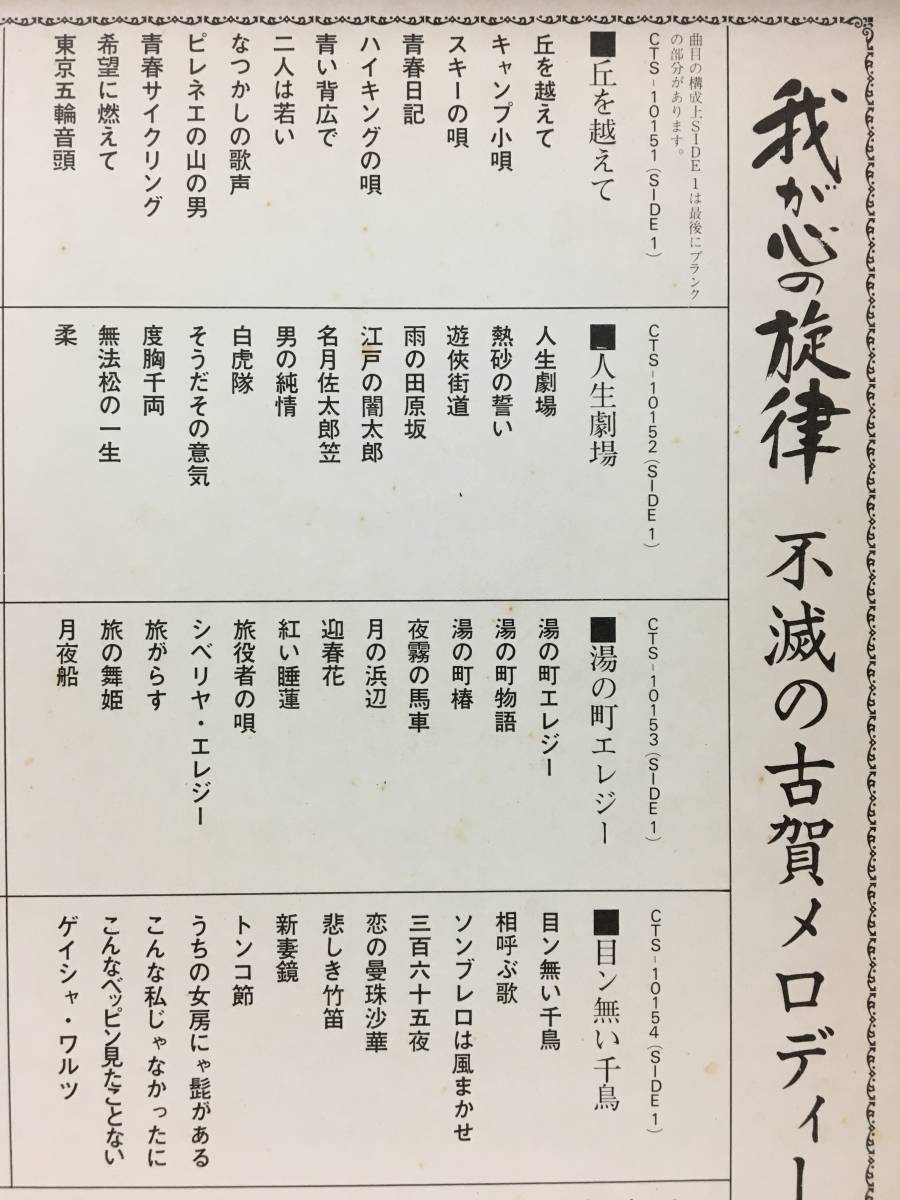 我が心の旋律 不滅の古賀メロディー
曲目の構成上SIDE 1は最後にブランク
の部分があります。
CTS-10151(SIDE 1)
■丘を越えて
丘を越えて
キャンプ小唄
スキーの唄
青春日記
ハイキングの唄
青い背広で
二人は若い
なつかしの歌声
ピレネエの山の男
青春サイクリング
希望に燃えて
東京五輪音頭
CTS-10152(SIDE 1)
■人生劇場
人生劇場
熱砂の誓い
遊侠街道
雨の田原坂
江戸の闇太郎
名月佐太郎笠
男の純情
白虎隊
そうだその意気
度胸千両
無法松の一生
柔
CTS-10153(SIDE 1)
■湯の町エレジー
湯の町エレジー
湯の町物語
湯の町椿
夜霧の馬車
月の浜辺
迎春花
紅い睡蓮
旅役者の唄
シベリヤ・エレジー
旅がらす
旅の舞姫
月夜船
CTS-10154(SIDE 1)
■目ン無い千鳥
目ン無い千鳥
相呼ぶ歌
ソンブレロは風まかせ
三百六十五夜
恋の曼珠沙華
悲しき竹笛
新妻鏡
トンコ節
うちの女房にゃ髭がある
こんな私じゃなかったに
こんなベッピン見たことない
ゲイシャ・ワルツ